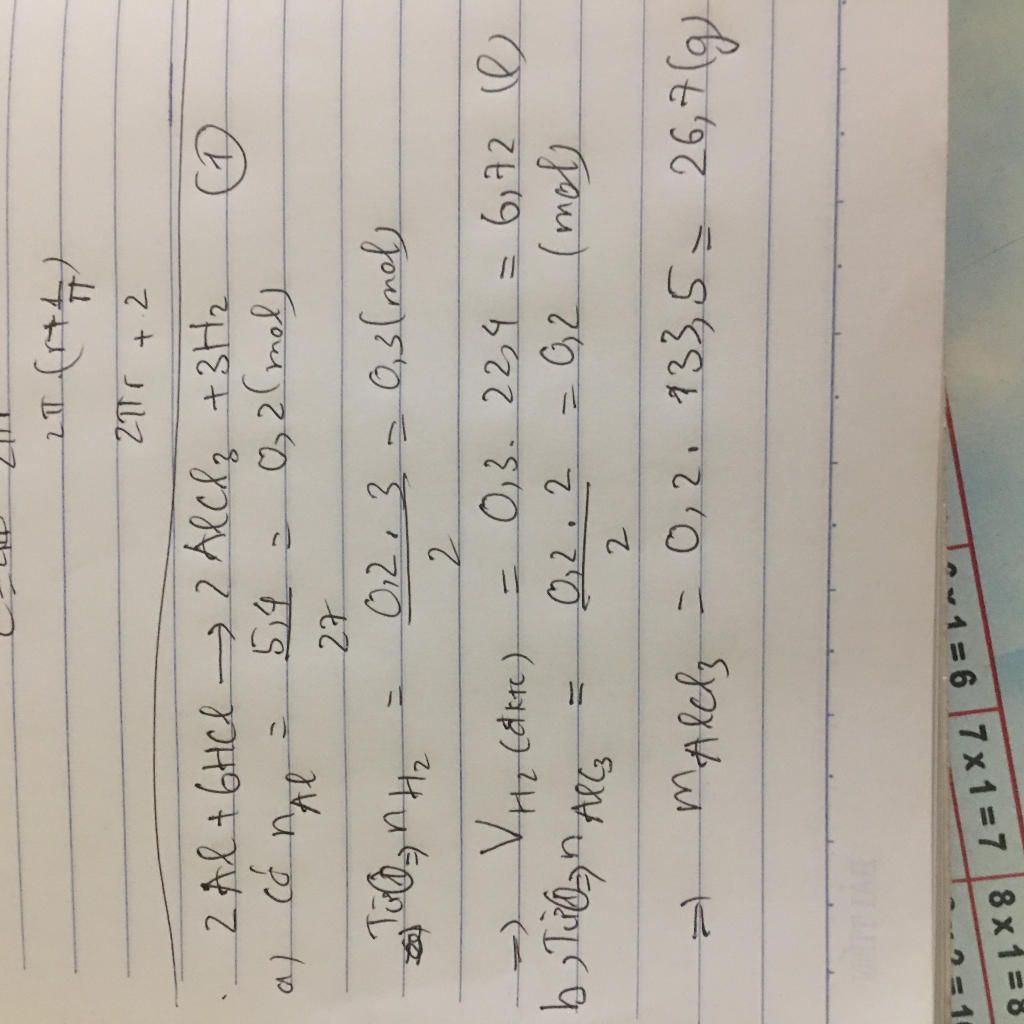 2π.(r+1/π)
2πr + 2
2Al + 6HCl → 2AlCl₃ + 3H₂ (1)
a) Có n Al = 5,4/27 = 0,2 (mol)
Từ(1)⇒ n H₂ = 0,2.3/2 = 0,3 (mol)
⇒ V H₂ (đktc) = 0,3. 22,4 = 6,72 (l)
b, Từ(1)⇒ n AlCl₃ = 0,2.2/2 = 0,2 (mol)
⇒ m AlCl₃ = 0,2. 133,5 = 26,7 (g)
x1=6
7x1=7
8x1=8